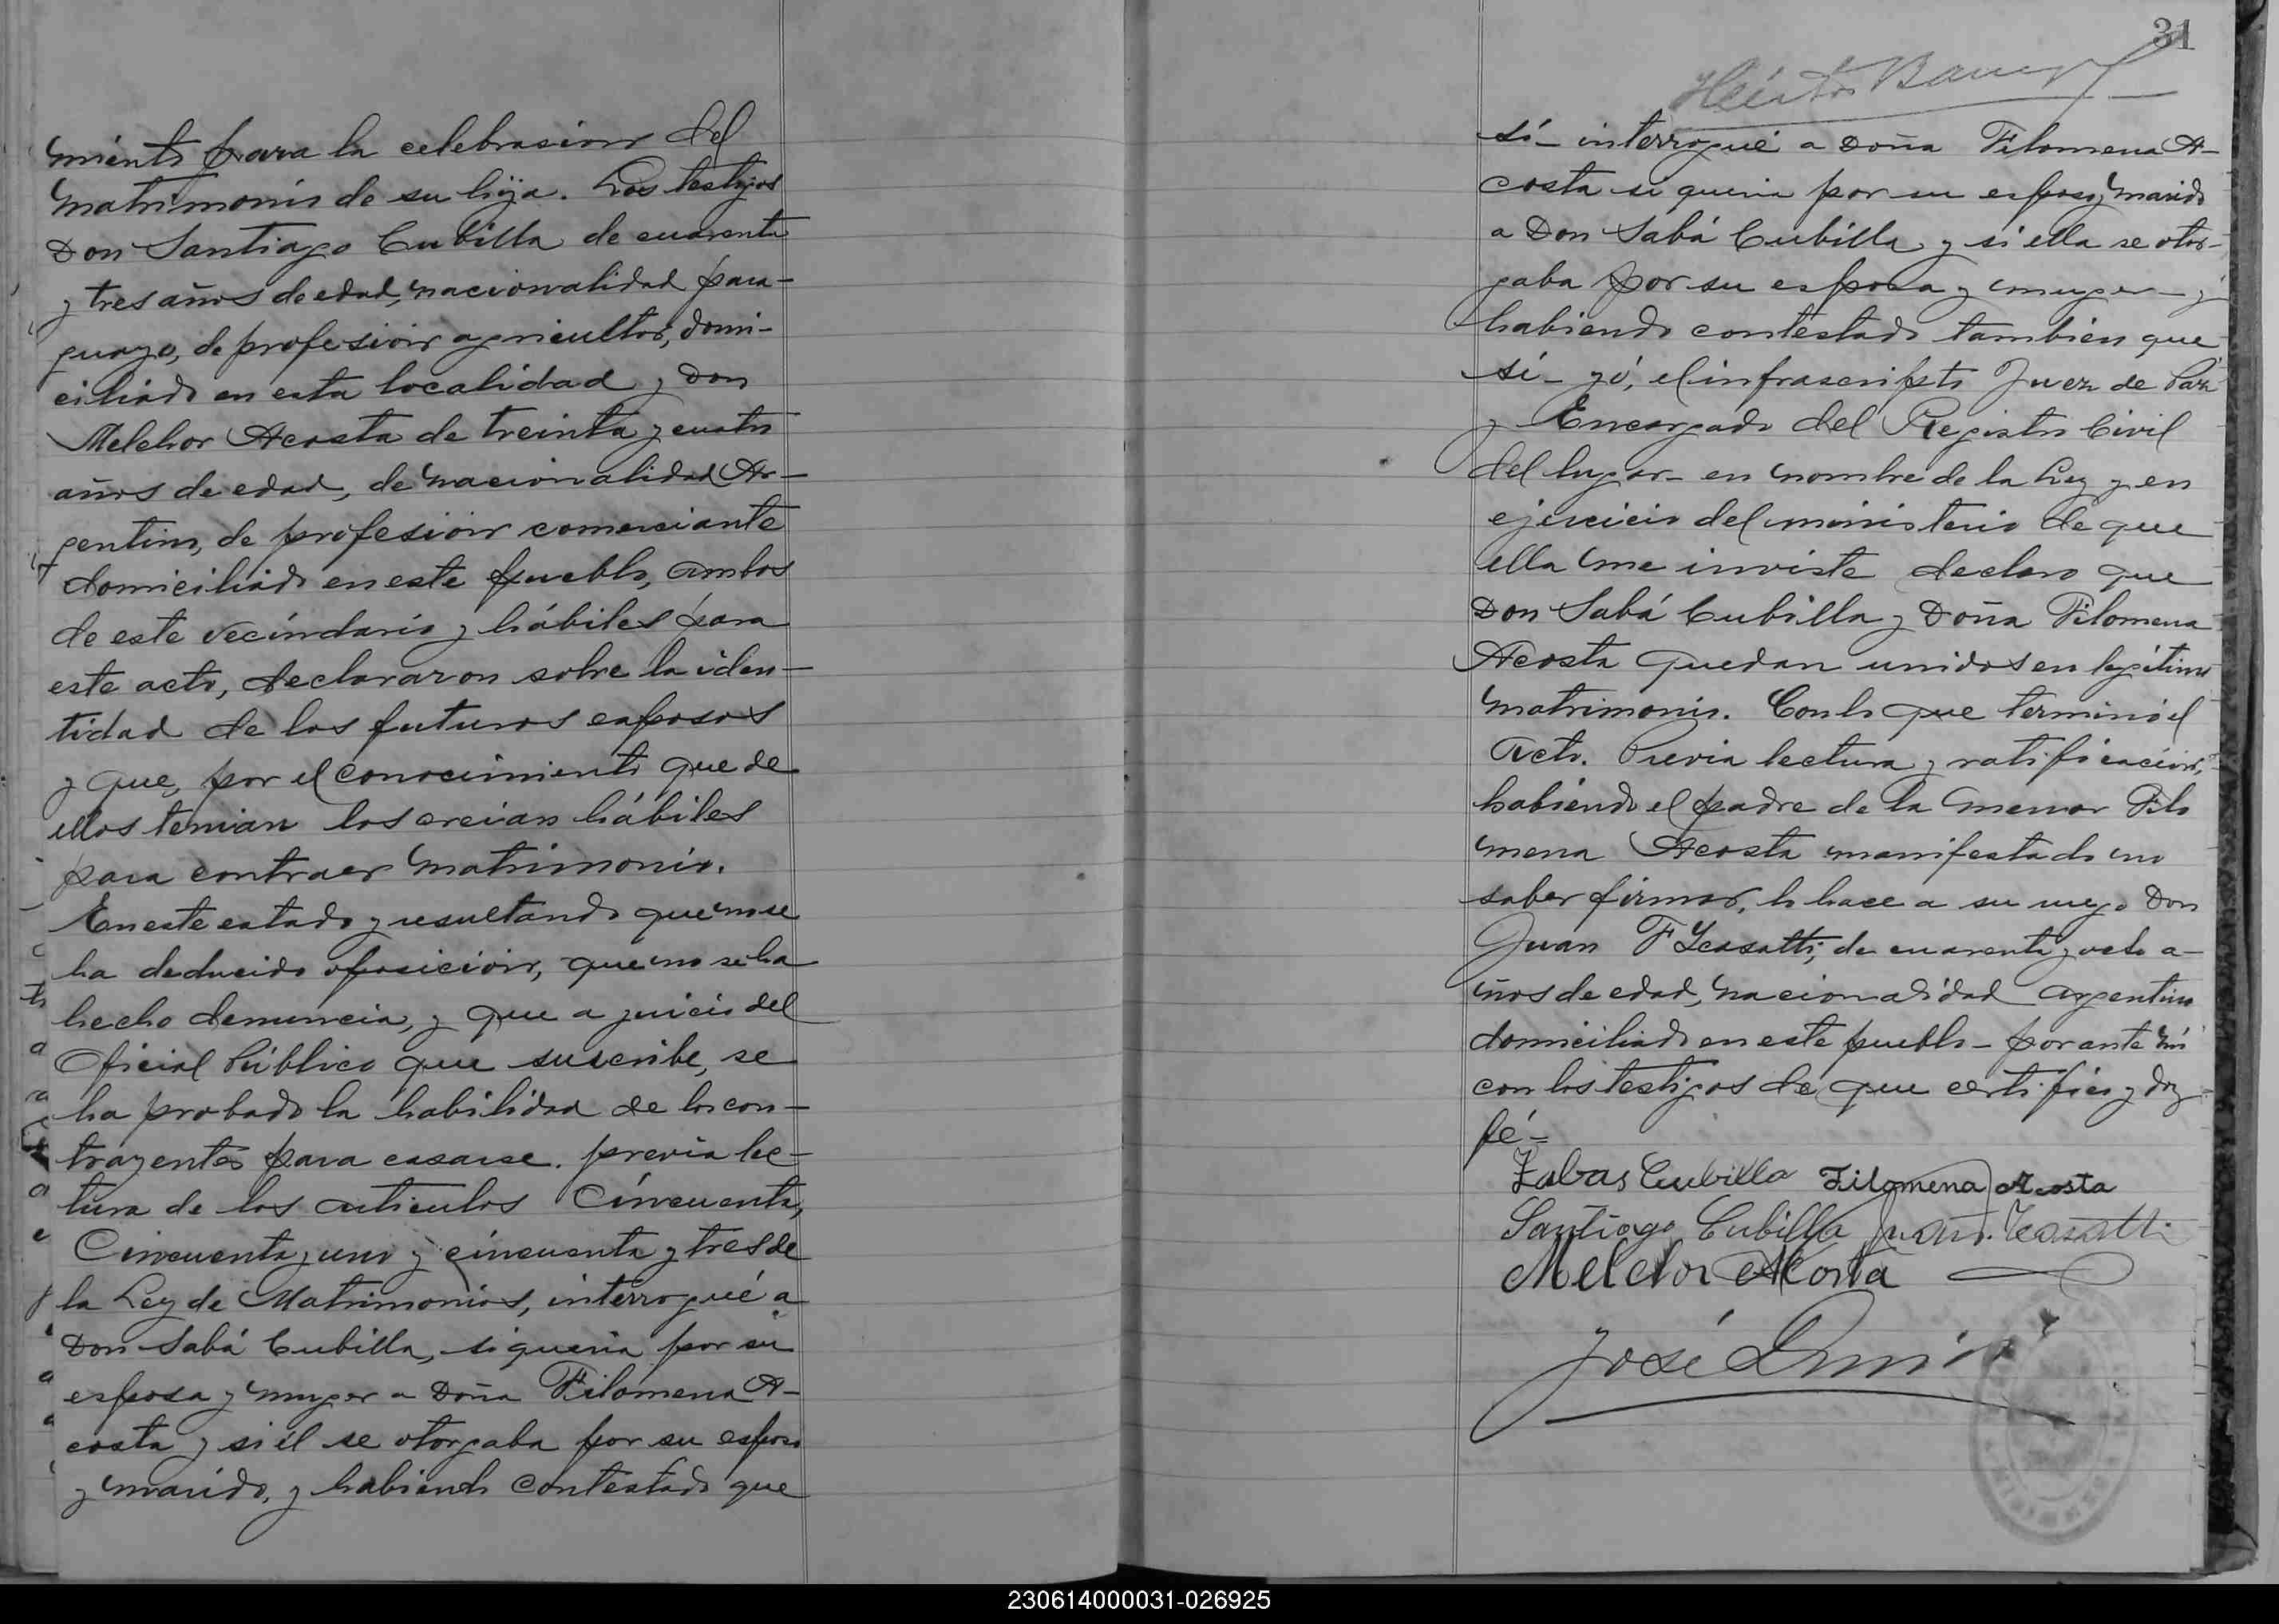 miento para la celebrasión del
Matrimonio de su hija. Los testigos
Don Santiago Cubilla de cuarenta
y tres años de edad, nacionalidad para-
guayo, de profesión agricultor, domi-
ciliado en esta localidad y Don
Melchor Acosta de treinta y cuatro
años de edad, de nacionalidad Ar-
gentino, de profesión comerciante
domiciliado en este pueblo, ambos
de este vecindario y hábiles para
este acto, declararon sobre la iden-
tidad de los futuros esposos
y que, por el conocimiento que de
ellos tenian los creian hábiles
para contraer matrimonio.
En este estado y resultando que no se
ha deducido oposición, que no se ha
hecho denuncia, y que a juicio del
Oficial Público que suscribe, se
ha probado la habilidad de los con-
trayentes para casarse. previa lec-
tura de los articulos Cincuenta,
Cincuenta y uno y cincuenta y tres de
la Ley de Matrimonios, interrogué a
Don Sabá Cubilla, si queria por su
esposa y muger a Doña Filomena A-
costa y si él se otorgaba por su esposo
y marido, y habiendo contestado que
31
Héctor
sí- interrogué a Doña Filomena A-
costa si queria por su esposo y marido
a Don Sabá Cubilla y si ella se otor-
gaba por su esposa y muger- y
habiendo contestado tambien que
sí- yó, el infrascripto Juez de Paz
y Encargado del Registro Civil
del lugar- en nombre de la Ley y en
ejercicio del ministerio de que
ella me inviste declaro que
Don Sabá Cubilla y Doña Filomena
Acosta quedan unidos en legítimo
matrimonio. Con lo que terminó el
Acto. Previa lectura y ratificación,
habiendo el padre de la menor Filo
mena Acosta manifestado no
saber firmar, lo hace a su ruego Don
Juan F Ycasatti, de cuarenta y ocho a-
ños de edad, nacionalidad argentino
domiciliado en este pueblo- por ante mí
con los testigos de que certifico y doy
fé-
Zabas Cubilla Filomena Acosta
Santiago Cubilla Juan F. Ycasatti
Melchor Acosta
José
230614000031-026925